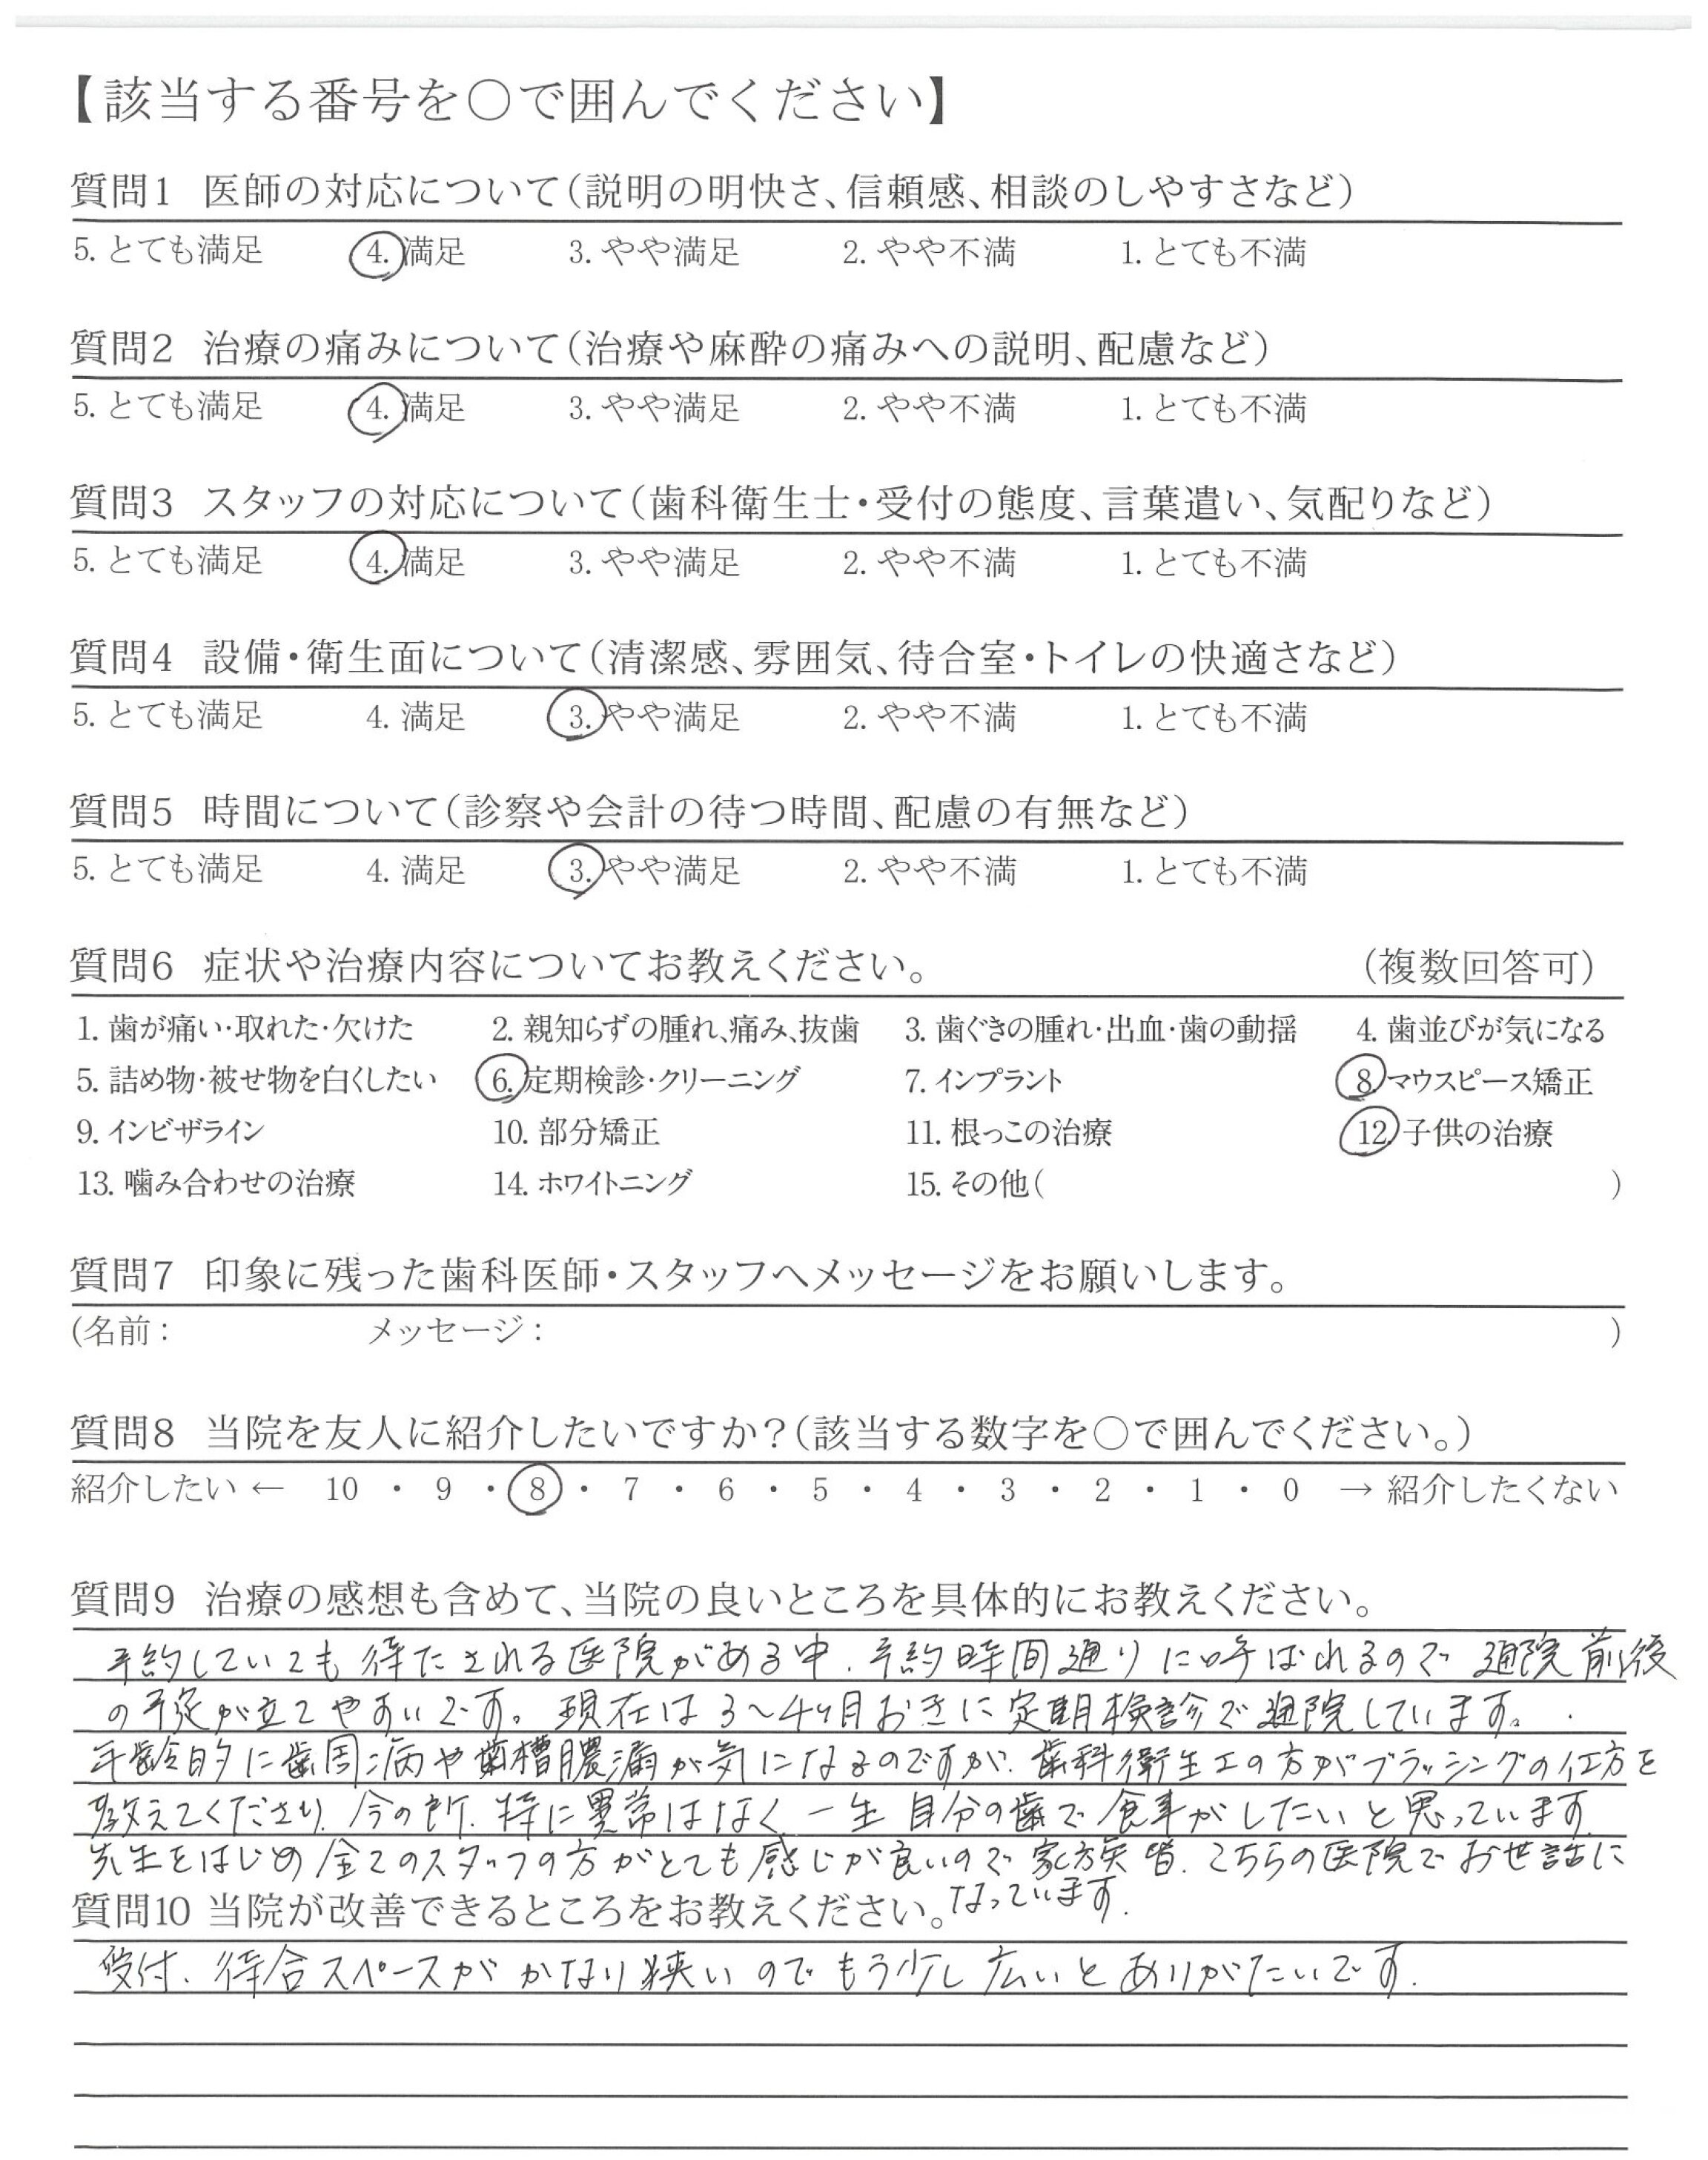 【該当する番号を○で囲んでください】
質問1 医師の対応について(説明の明快さ、信頼感、相談のしやすさなど)
5. とても満足 4. 満足 3. やや満足 2. やや不満 1. とても不満
質問2 治療の痛みについて(治療や麻酔の痛みへの説明、配慮など)
5. とても満足 4. 満足 3. やや満足 2. やや不満 1. とても不満
質問3 スタッフの対応について(歯科衛生士・受付の態度、言葉遣い、気配りなど)
5. とても満足 4. 満足 3. やや満足 2. やや不満 1. とても不満
質問4 設備・衛生面について(清潔感、雰囲気、待合室・トイレの快適さなど)
5. とても満足 4. 満足 3. やや満足 2. やや不満 1. とても不満
質問5 時間について(診察や会計の待つ時間、配慮の有無など)
5. とても満足 4. 満足 3. やや満足 2. やや不満 1. とても不満
質問6 症状や治療内容についてお教えください。 (複数回答可)
1. 歯が痛い・取れた・欠けた 2. 親知らずの腫れ、痛み、抜歯 3. 歯ぐきの腫れ・出血・歯の動揺 4. 歯並びが気になる
5. 詰め物・被せ物を白くしたい 6. 定期検診・クリーニング 7. インプラント 8. マウスピース矯正
9. インビザライン 10. 部分矯正 11. 根っこの治療 12. 子供の治療
13. 噛み合わせの治療 14. ホワイトニング 15. その他( )
質問7 印象に残った歯科医師・スタッフへメッセージをお願いします。
(名前: メッセージ: )
質問8 当院を友人に紹介したいですか?(該当する数字を○で囲んでください。)
紹介したい ← 10 ・ 9 ・ 8 ・ 7 ・ 6 ・ 5 ・ 4 ・ 3 ・ 2 ・ 1 ・ 0 → 紹介したくない
質問9 治療の感想も含めて、当院の良いところを具体的にお教えください。
予約していても待たされる医院がある中、予約時間通りに呼ばれるので通院前後
の予定が立てやすいです。現在は3〜4ヶ月おきに定期検診で通院しています。
年齢的に歯周病や歯槽膿漏が気になるのですが、歯科衛生士の方がブラッシングの仕方を
教えてくださり、今の所、特に異常はなく一生自分の歯で食事がしたいと思っています。
先生をはじめ全てのスタッフの方がとても感じが良いので家族皆、こちらの医院でお世話に
なっています。
質問10 当院が改善できるところをお教えください。
受付、待合スペースがかなり狭いのでもう少し広いとありがたいです。